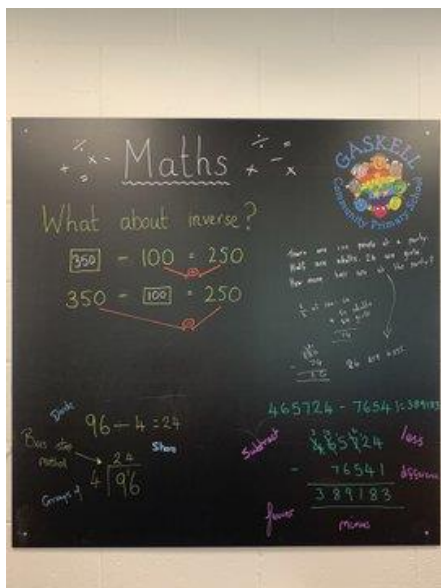 ÷ × - Maths ÷ = + - ×
GASKELL
Community Primary School
What about inverse?
350 - 100 = 250
350 - 100 = 250
There are 100 people at a party.
Half are adults. 26 are girls.
How many boys are at the party?
Divide
96 ÷ 4 = 24
Share
Bus stop
method
24
4 96
Groups of
465724 - 76541 = 389183
Subtract
465724
less
- 76541
difference
389183
fewer
minus